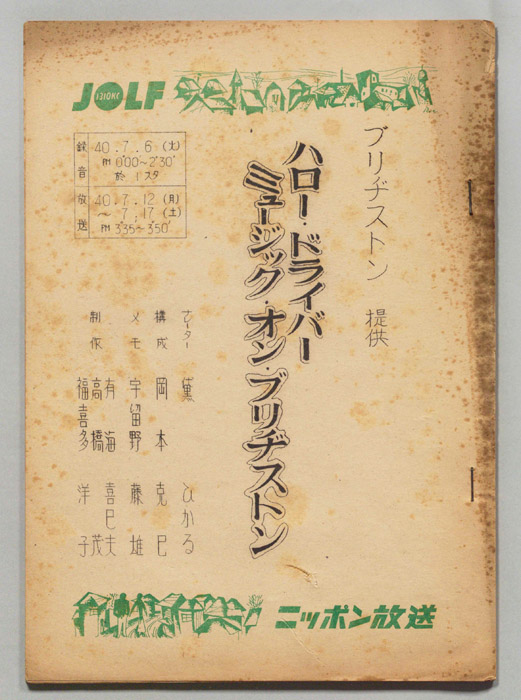 JOLF
1310KC
ブリヂストン 提供
ハロー・ドライバー
ミュージック・オン・ブリヂストン
録音 40.7.6(火)
PM 0'00~2'30'
於 1スタ
放送 40.7.12(月)
~7.17(土)
PM 3'35~3'50'
ナレーター 黛 ひかる
構成 岡本 克巳
メモ 宇留野 藤雄
制作 有海 喜巳夫
高橋 茂
福喜多 洋子
ニッポン放送